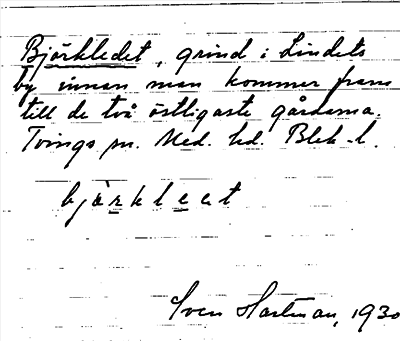 Björkledet, grind i Lindets
by innan man kommer fram
till de två östligaste gårdarna.
Tvings sn. Med. hd. Blek. l.
bjärkleet
Sven Hartman, 1930